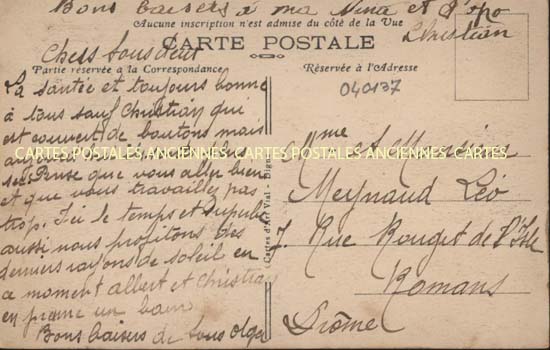 Bons baisers à ma Nina et
Christian
Aucune inscription n'est admise du côté de la Vue
CARTE POSTALE
Partie réservée a la Correspondance
Réservée à l'Adresse
040137
Chess Tous deux
La santée et toujours bonne
à tous sauf Christian qui
est couvert de boutons mais
CARTES POSTALES ANCIENNES CARTES POSTALES ANCIENNES CARTES
Pense que vous allez bien
et que vous travaillez pas
trop. Ici le temps et superbe
aussi nous profitons des
derniers rayons de soleil en
ce moment albert et Christian
en prenne un bain
Bons baisers de tous Olga
Cartes d'Art Vial - Digne
Mme et Mr
Meynaud Léo
7. Rue Rouget de l'Isle
Romans
Drôme